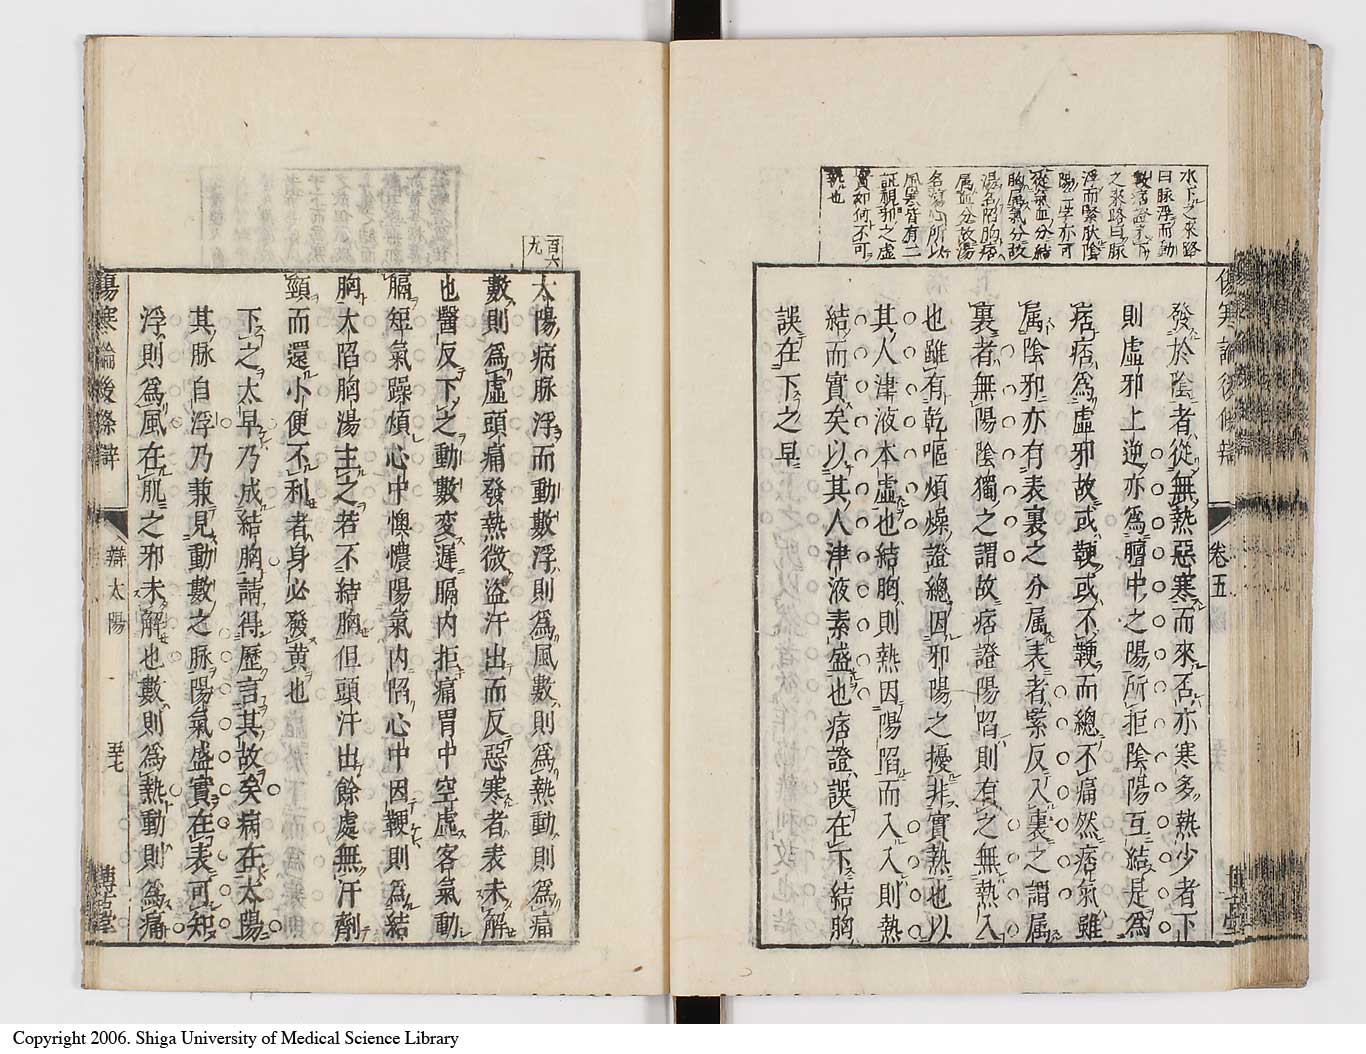 水下之來路
曰脉浮而動
數痛證表下
之來路曰脉
浮而緊肰陰
陽二字亦可
從氣血分結
胸屬氣分故
湯名陷胸痞
属血分故湯
名瀉心所以
風寒皆有二
証視邪之虛
實如何不可
執也
傷寒論後條辯
卷五
發於陰者從無熱惡寒而來否亦寒多熱少者下
則虛邪上逆亦爲膻中之陽所拒陰陽互結是爲
痞痞爲虛邪故或鞕或不鞕而總不痛然痞氣雖
属陰邪亦有表裏之分属表者案反入裏之謂属
裏者無陽陰獨之謂故痞證陽陷則有之無熱入
也雖有乾嘔煩燥證總因邪陽之擾非實熱也以
其人津液本虛也結胸則熱因陽陷而入入則熱
結而實矣以其人津液素盛也痞證誤在下結胸
誤在下之早
百六
九
太陽病脉浮而動數浮則爲風數則爲熱動則爲痛
數則爲虛頭痛發熱微盗汗出而反惡寒者表未解
也醫反下之動數変遲膈内拒痛胃中空虛客氣動
膈短氣躁煩心中懊憹陽氣内陷心中因鞕則爲結
胸大陷胸湯主之若不結胸但頭汗出餘處無汗劑
頸而還小便不利者身必發黄也
下之太早乃成結胸請得歷言其故矣病在太陽
其脉自浮乃兼見動數之脉陽氣盛實在表可知
浮則爲風在肌之邪未解也數則爲熱動則爲痛
傷寒論後條辯
辯太陽
五十七
博古堂
Copyright 2006. Shiga University of Medical Science Library